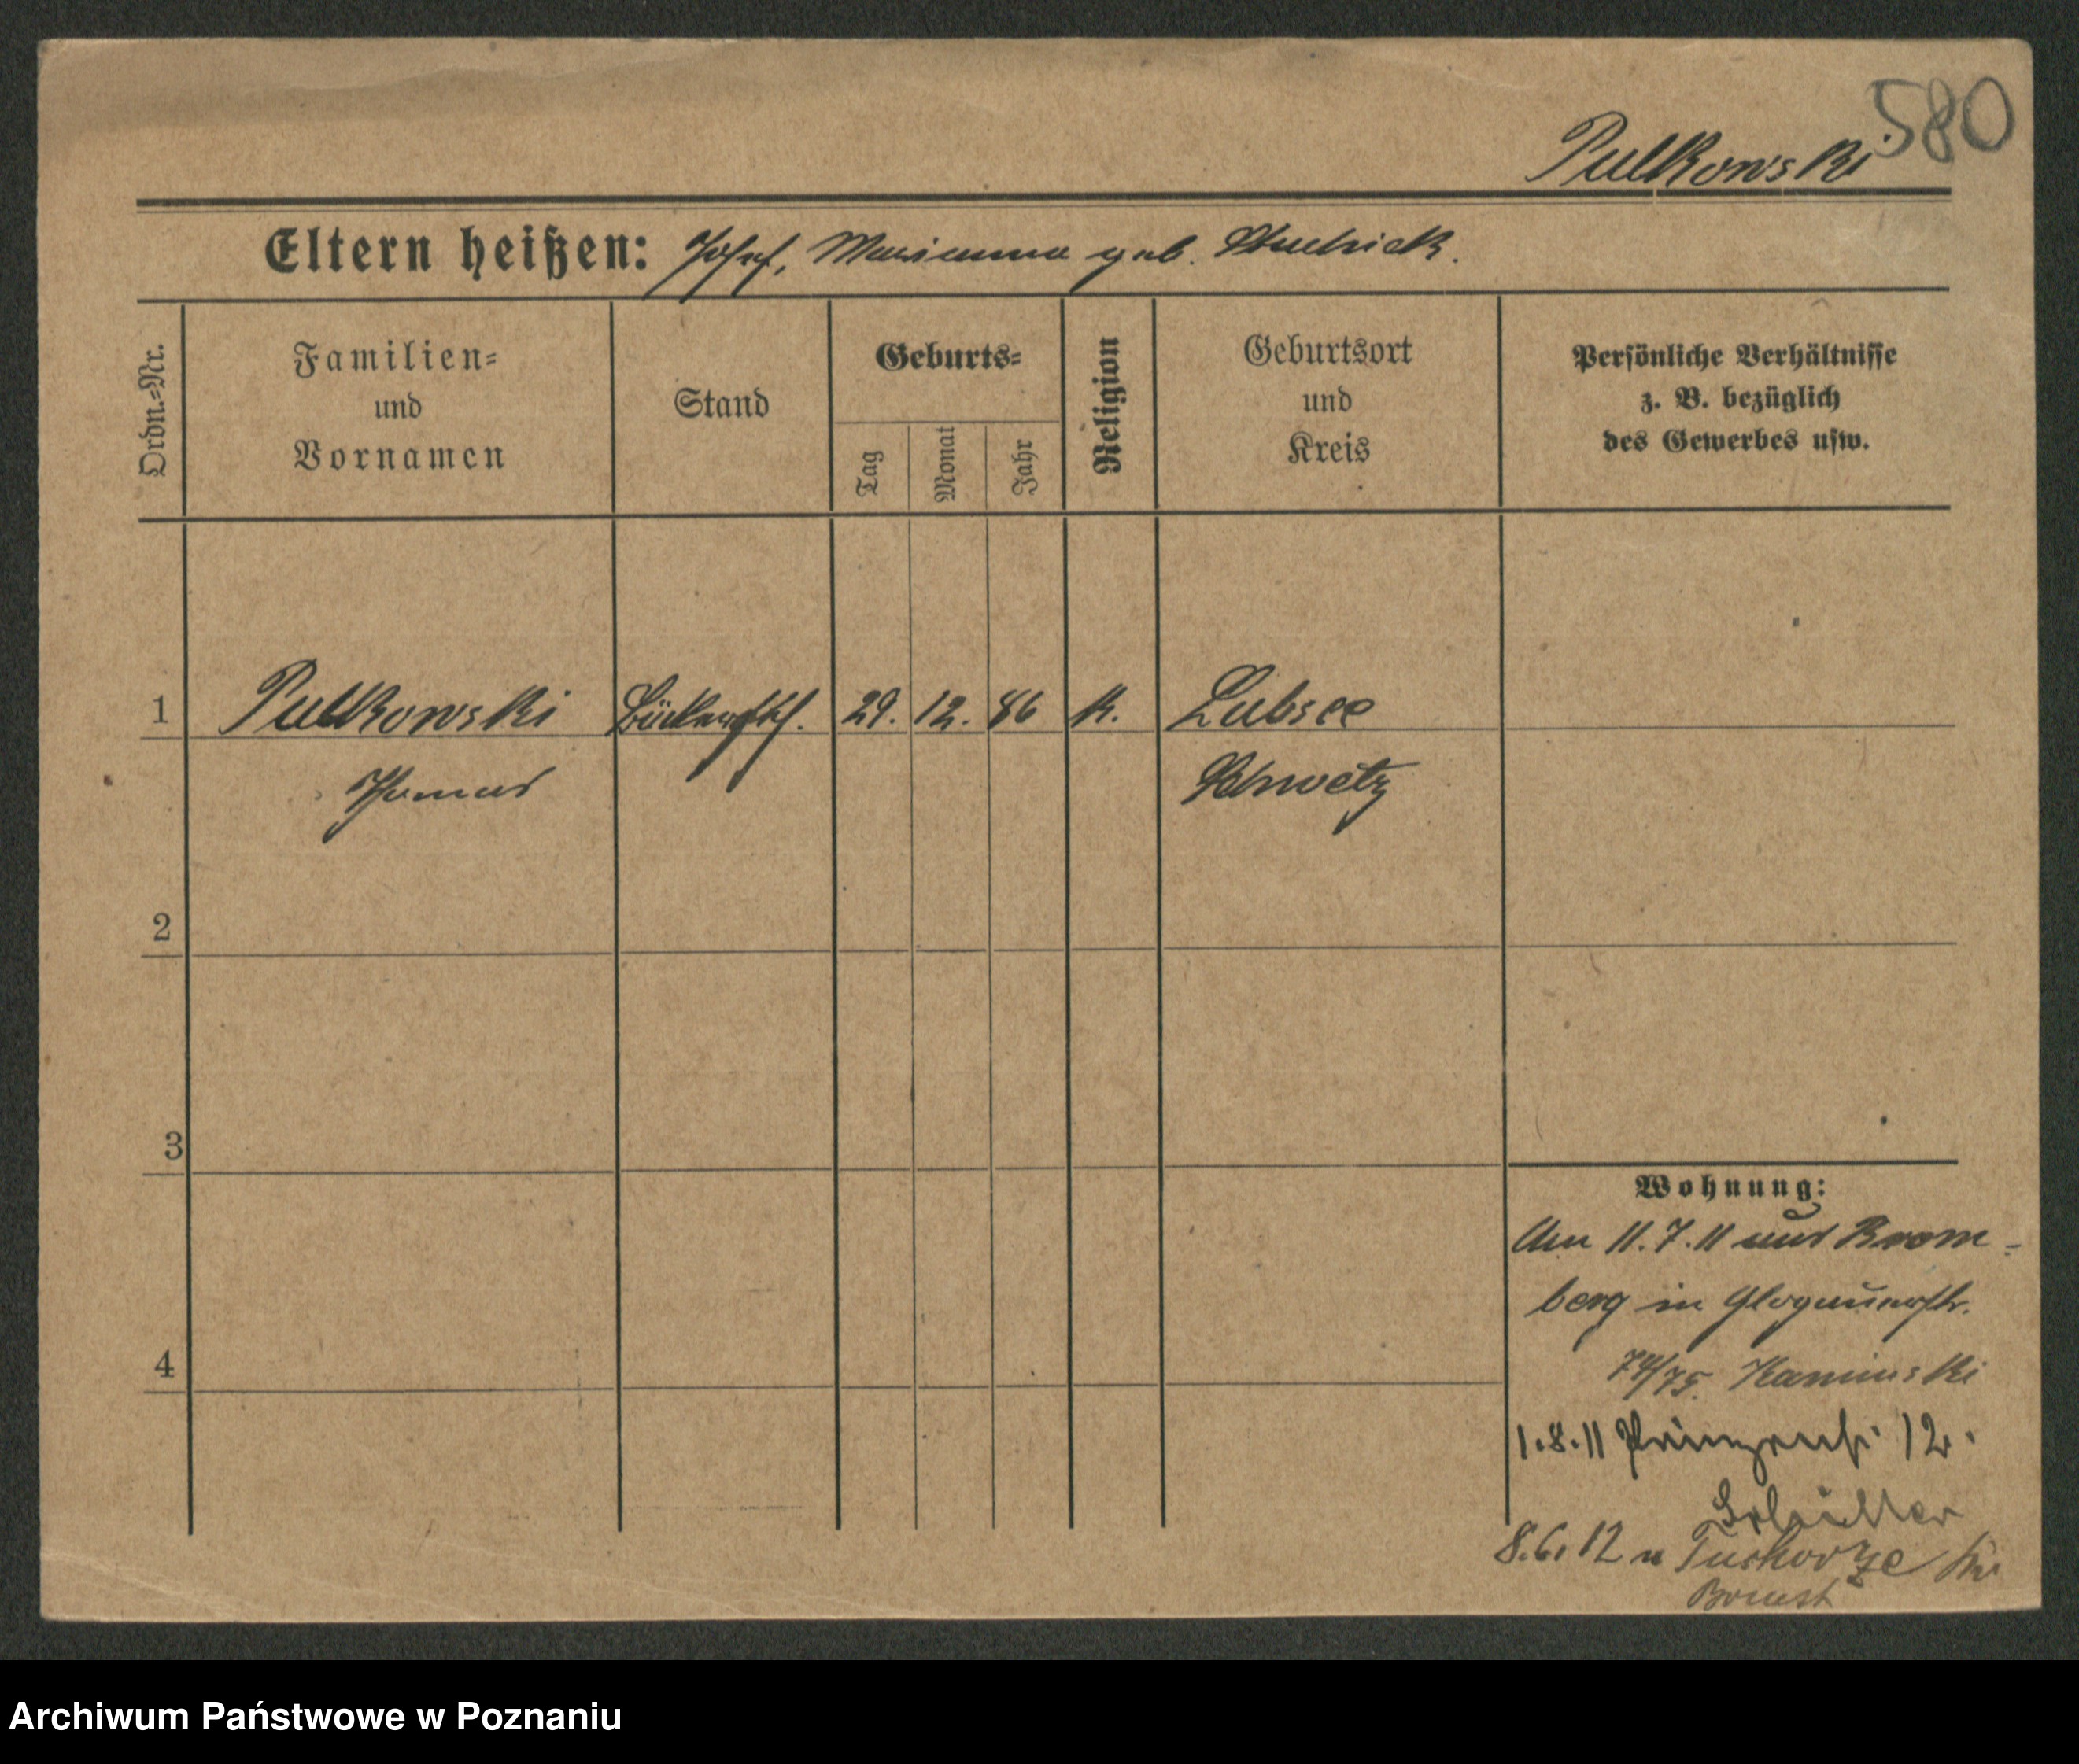 580
Pulkowski
Eltern heißen: Josef, Marianna geb.
Ordn.=Nr.
Familien=
und
Vornamen
Stand
Geburts=
Tag
Monat
Jahr
Religion
Geburtsort
und
Kreis
Persönliche Verhältnisse
z. B. bezüglich
des Gewerbes usw.
1 Pulkowski 29. 12. 86 k. Lubsee
Thomas Schwetz
2
3
4
Wohnung:
Am 11.7.11 aus Brom-
berg in Glogauerstr.
74/75. Kaminski
1.8.11 12.
8.6.12 n Tuchorze Kr.
Bomst
Archiwum Państwowe w Poznaniu